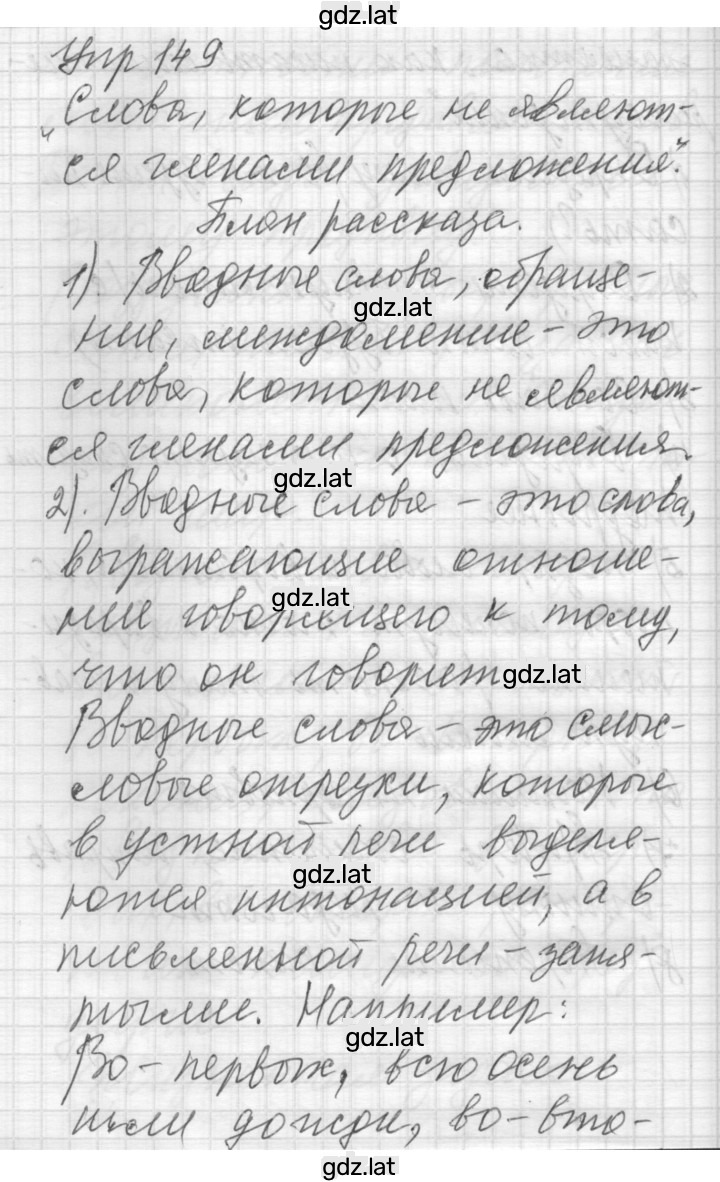 gdz.latУпр 149
„Слова, которые не являют-
ся членами предложения".
План рассказа.
1). Вводные слова, обраще-
gdz.lat
ние, междомение – это
слова, которые не являют-
ся членами предложения.
gdz.lat
2). Вводные слова – это слова,
выражающие отноше-
gdz.lat
ние говорящего к тому,
что он говорит
gdz.lat
Вводные слова – это смыс-
ловые отрезки, которые
в устной речи выделя-
gdz.lat
ются интонацией, а в
письменной речи – запя-
тыми. Например:
gdz.lat
Во-первых, всю осень
шли дожди, во-вто-
gdz.lat